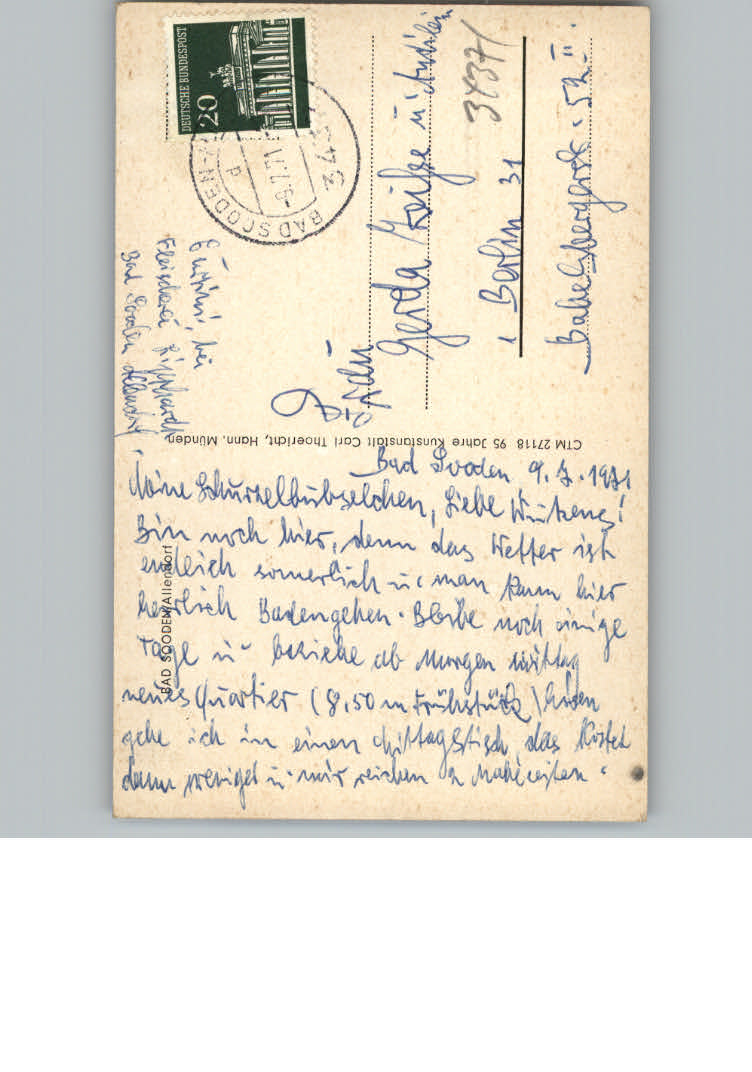 Bad Sooden, 9.7.1971
Meine Schurzelbubselchen, Liebe
Bin noch hier, denn das Wetter ist
endleich somerlich u. man kann hier
herrlich Badengehen. Bleibe noch einige
Tage u. beziehe ab morgen mittag
neues Quartier (8,50 m Frühstück)
gehe ich in einen Mittagstisch, das kostet
dann weniger u. mir reichen 2 Mahlzeiten.
BAD SOODEN/Allendorf
CTM 27118 95 Jahre Kunstanstalt Carl Thoericht, Hann. Münden
bei
Fleischerei
Bad Sooden Allendorf
DEUTSCHE BUNDESPOST
20
BAD SOODEN-
-9.7.71
3437
Gerda u.
1 Berlin 31
Babelsbergerstr. 52 II.